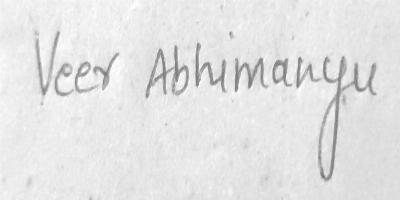 Veer Abhimanyu